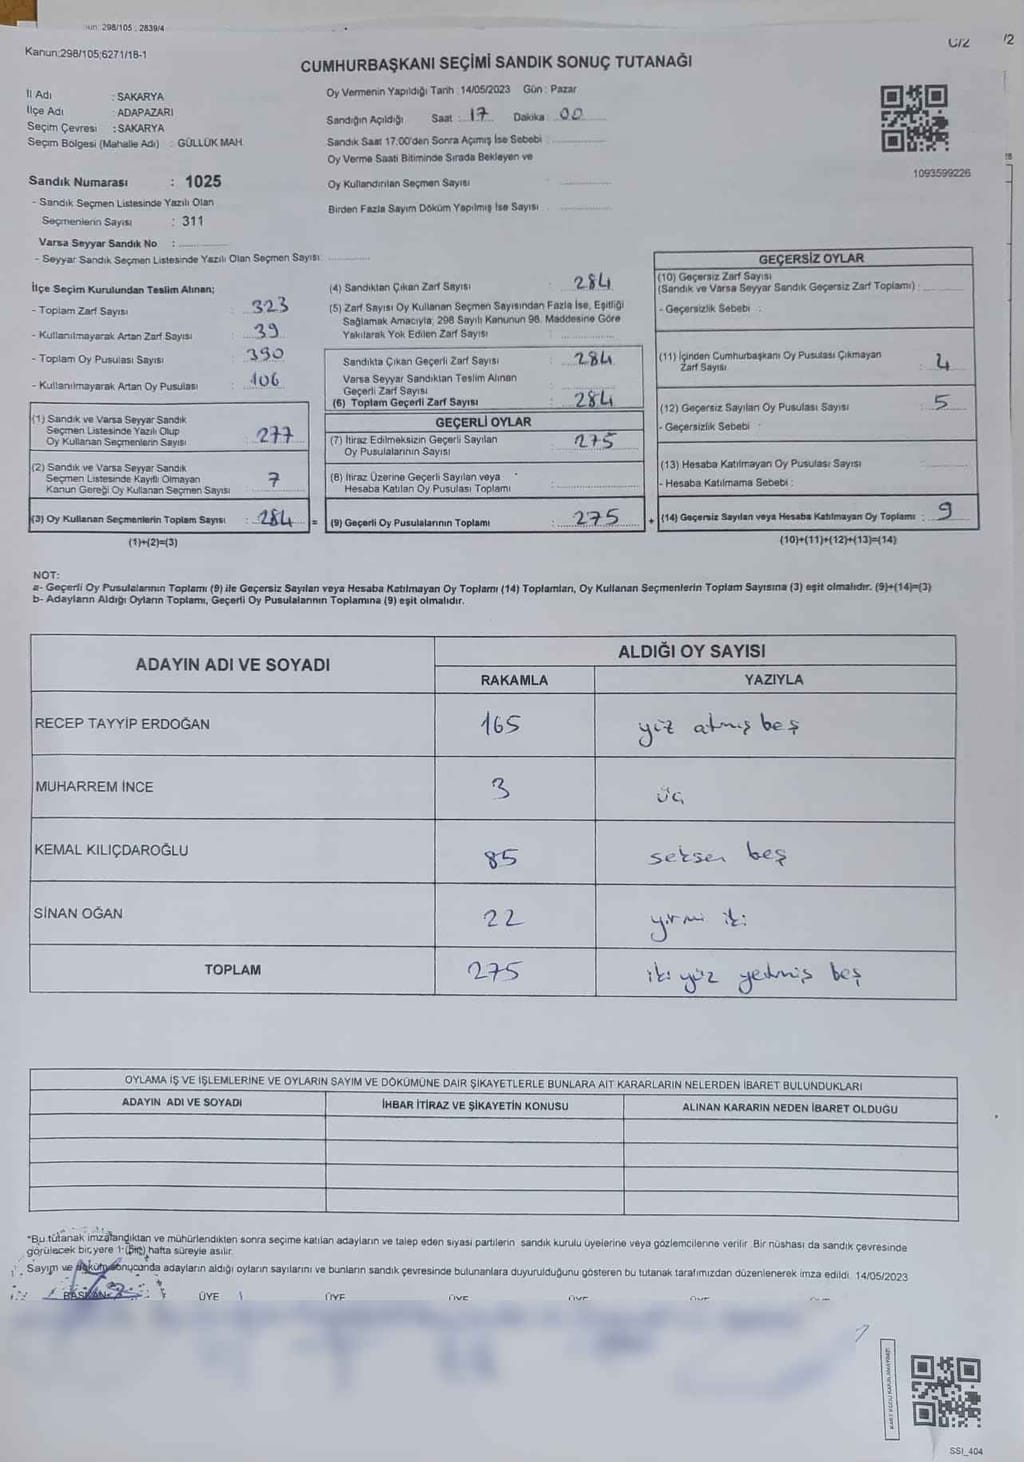 Kanun:298/105;6271/18-1
CUMHURBAŞKANI SEÇİMİ SANDIK SONUÇ TUTANAĞI
İl Adı : SAKARYA
İlçe Adı : ADAPAZARI
Seçim Çevresi : SAKARYA
Seçim Bölgesi (Mahalle Adı) : GÜLLÜK MAH.
Sandık Numarası : 1025
- Sandık Seçmen Listesinde Yazılı Olan
Seçmenlerin Sayısı : 311
Varsa Seyyar Sandık No :
- Seyyar Sandık Seçmen Listesinde Yazılı Olan Seçmen Sayısı:
Oy Vermenin Yapıldığı Tarih : 14/05/2023 Gün : Pazar
Sandığın Açıldığı Saat : 17 Dakika : 00
Sandık Saat 17.00'den Sonra Açımış İse Sebebi :
Oy Verme Saati Bitiminde Sırada Bekleyen ve
Oy Kullandırılan Seçmen Sayısı :
Birden Fazla Sayım Döküm Yapılmış İse Sayısı :
1093599226
İlçe Seçim Kurulundan Teslim Alınan;
- Toplam Zarf Sayısı : 323
- Kullanılmayarak Artan Zarf Sayısı : 39
- Toplam Oy Pusulası Sayısı : 390
- Kullanılmayarak Artan Oy Pusulası : 106
(1) Sandık ve Varsa Seyyar Sandık
Seçmen Listesinde Yazılı Olup
Oy Kullanan Seçmenlerin Sayısı : 277
(2) Sandık ve Varsa Seyyar Sandık
Seçmen Listesinde Kayıtlı Olmayan
Kanun Gereği Oy Kullanan Seçmen Sayısı : 7
(3) Oy Kullanan Seçmenlerin Toplam Sayısı : 284 =
(1)+(2)=(3)
(4) Sandıktan Çıkan Zarf Sayısı : 284
(5) Zarf Sayısı Oy Kullanan Seçmen Sayısından Fazla İse, Eşitliği
Sağlamak Amacıyla; 298 Sayılı Kanunun 98. Maddesine Göre
Yakılarak Yok Edilen Zarf Sayısı :
Sandıkta Çıkan Geçerli Zarf Sayısı : 284
Varsa Seyyar Sandıktan Teslim Alınan
Geçerli Zarf Sayısı
(6) Toplam Geçerli Zarf Sayısı : 284
GEÇERLİ OYLAR
(7) İtiraz Edilmeksizin Geçerli Sayılan
Oy Pusulalarının Sayısı : 275
(8) İtiraz Üzerine Geçerli Sayılan veya
Hesaba Katılan Oy Pusulası Toplamı :
(9) Geçerli Oy Pusulalarının Toplamı : 275 +
GEÇERSİZ OYLAR
(10) Geçersiz Zarf Sayısı
(Sandık ve Varsa Seyyar Sandık Geçersiz Zarf Toplamı) :
- Geçersizlik Sebebi :
(11) İçinden Cumhurbaşkanı Oy Pusulası Çıkmayan
Zarf Sayısı : 4
(12) Geçersiz Sayılan Oy Pusulası Sayısı : 5
- Geçersizlik Sebebi :
(13) Hesaba Katılmayan Oy Pusulası Sayısı :
- Hesaba Katılmama Sebebi :
(14) Geçersiz Sayılan veya Hesaba Katılmayan Oy Toplamı : 9
(10)+(11)+(12)+(13)=(14)
NOT:
a- Geçerli Oy Pusulalarının Toplamı (9) ile Geçersiz Sayılan veya Hesaba Katılmayan Oy Toplamı (14) Toplamları, Oy Kullanan Seçmenlerin Toplam Sayısına (3) eşit olmalıdır. (9)+(14)=(3)
b- Adayların Aldığı Oyların Toplamı, Geçerli Oy Pusulalarının Toplamına (9) eşit olmalıdır.
ADAYIN ADI VE SOYADI
ALDIĞI OY SAYISI
RAKAMLA YAZIYLA
RECEP TAYYİP ERDOĞAN 165 yüz atmış beş
MUHARREM İNCE 3 üç
KEMAL KILIÇDAROĞLU 85 seksen beş
SİNAN OĞAN 22 yirmi iki
TOPLAM 275 iki yüz yedmiş beş
OYLAMA İŞ VE İŞLEMLERİNE VE OYLARIN SAYIM VE DÖKÜMÜNE DAİR ŞİKAYETLERLE BUNLARA AİT KARARLARIN NELERDEN İBARET BULUNDUKLARI
ADAYIN ADI VE SOYADI İHBAR İTİRAZ VE ŞİKAYETİN KONUSU ALINAN KARARIN NEDEN İBARET OLDUĞU
*Bu tutanak imzalandıktan ve mühürlendikten sonra seçime katılan adayların ve talep eden siyasi partilerin sandık kurulu üyelerine veya gözlemcilerine verilir. Bir nüshası da sandık çevresinde
görülecek bir yere 1 (bir) hafta süreyle asılır.
Sayım ve döküm sonucunda adayların aldığı oyların sayılarını ve bunların sandık çevresinde bulunanlara duyurulduğunu gösteren bu tutanak tarafımızdan düzenlenerek imza edildi. 14/05/2023
BAŞKAN ÜYE ÜYE ÜYE ÜYE ÜYE
SSI_404